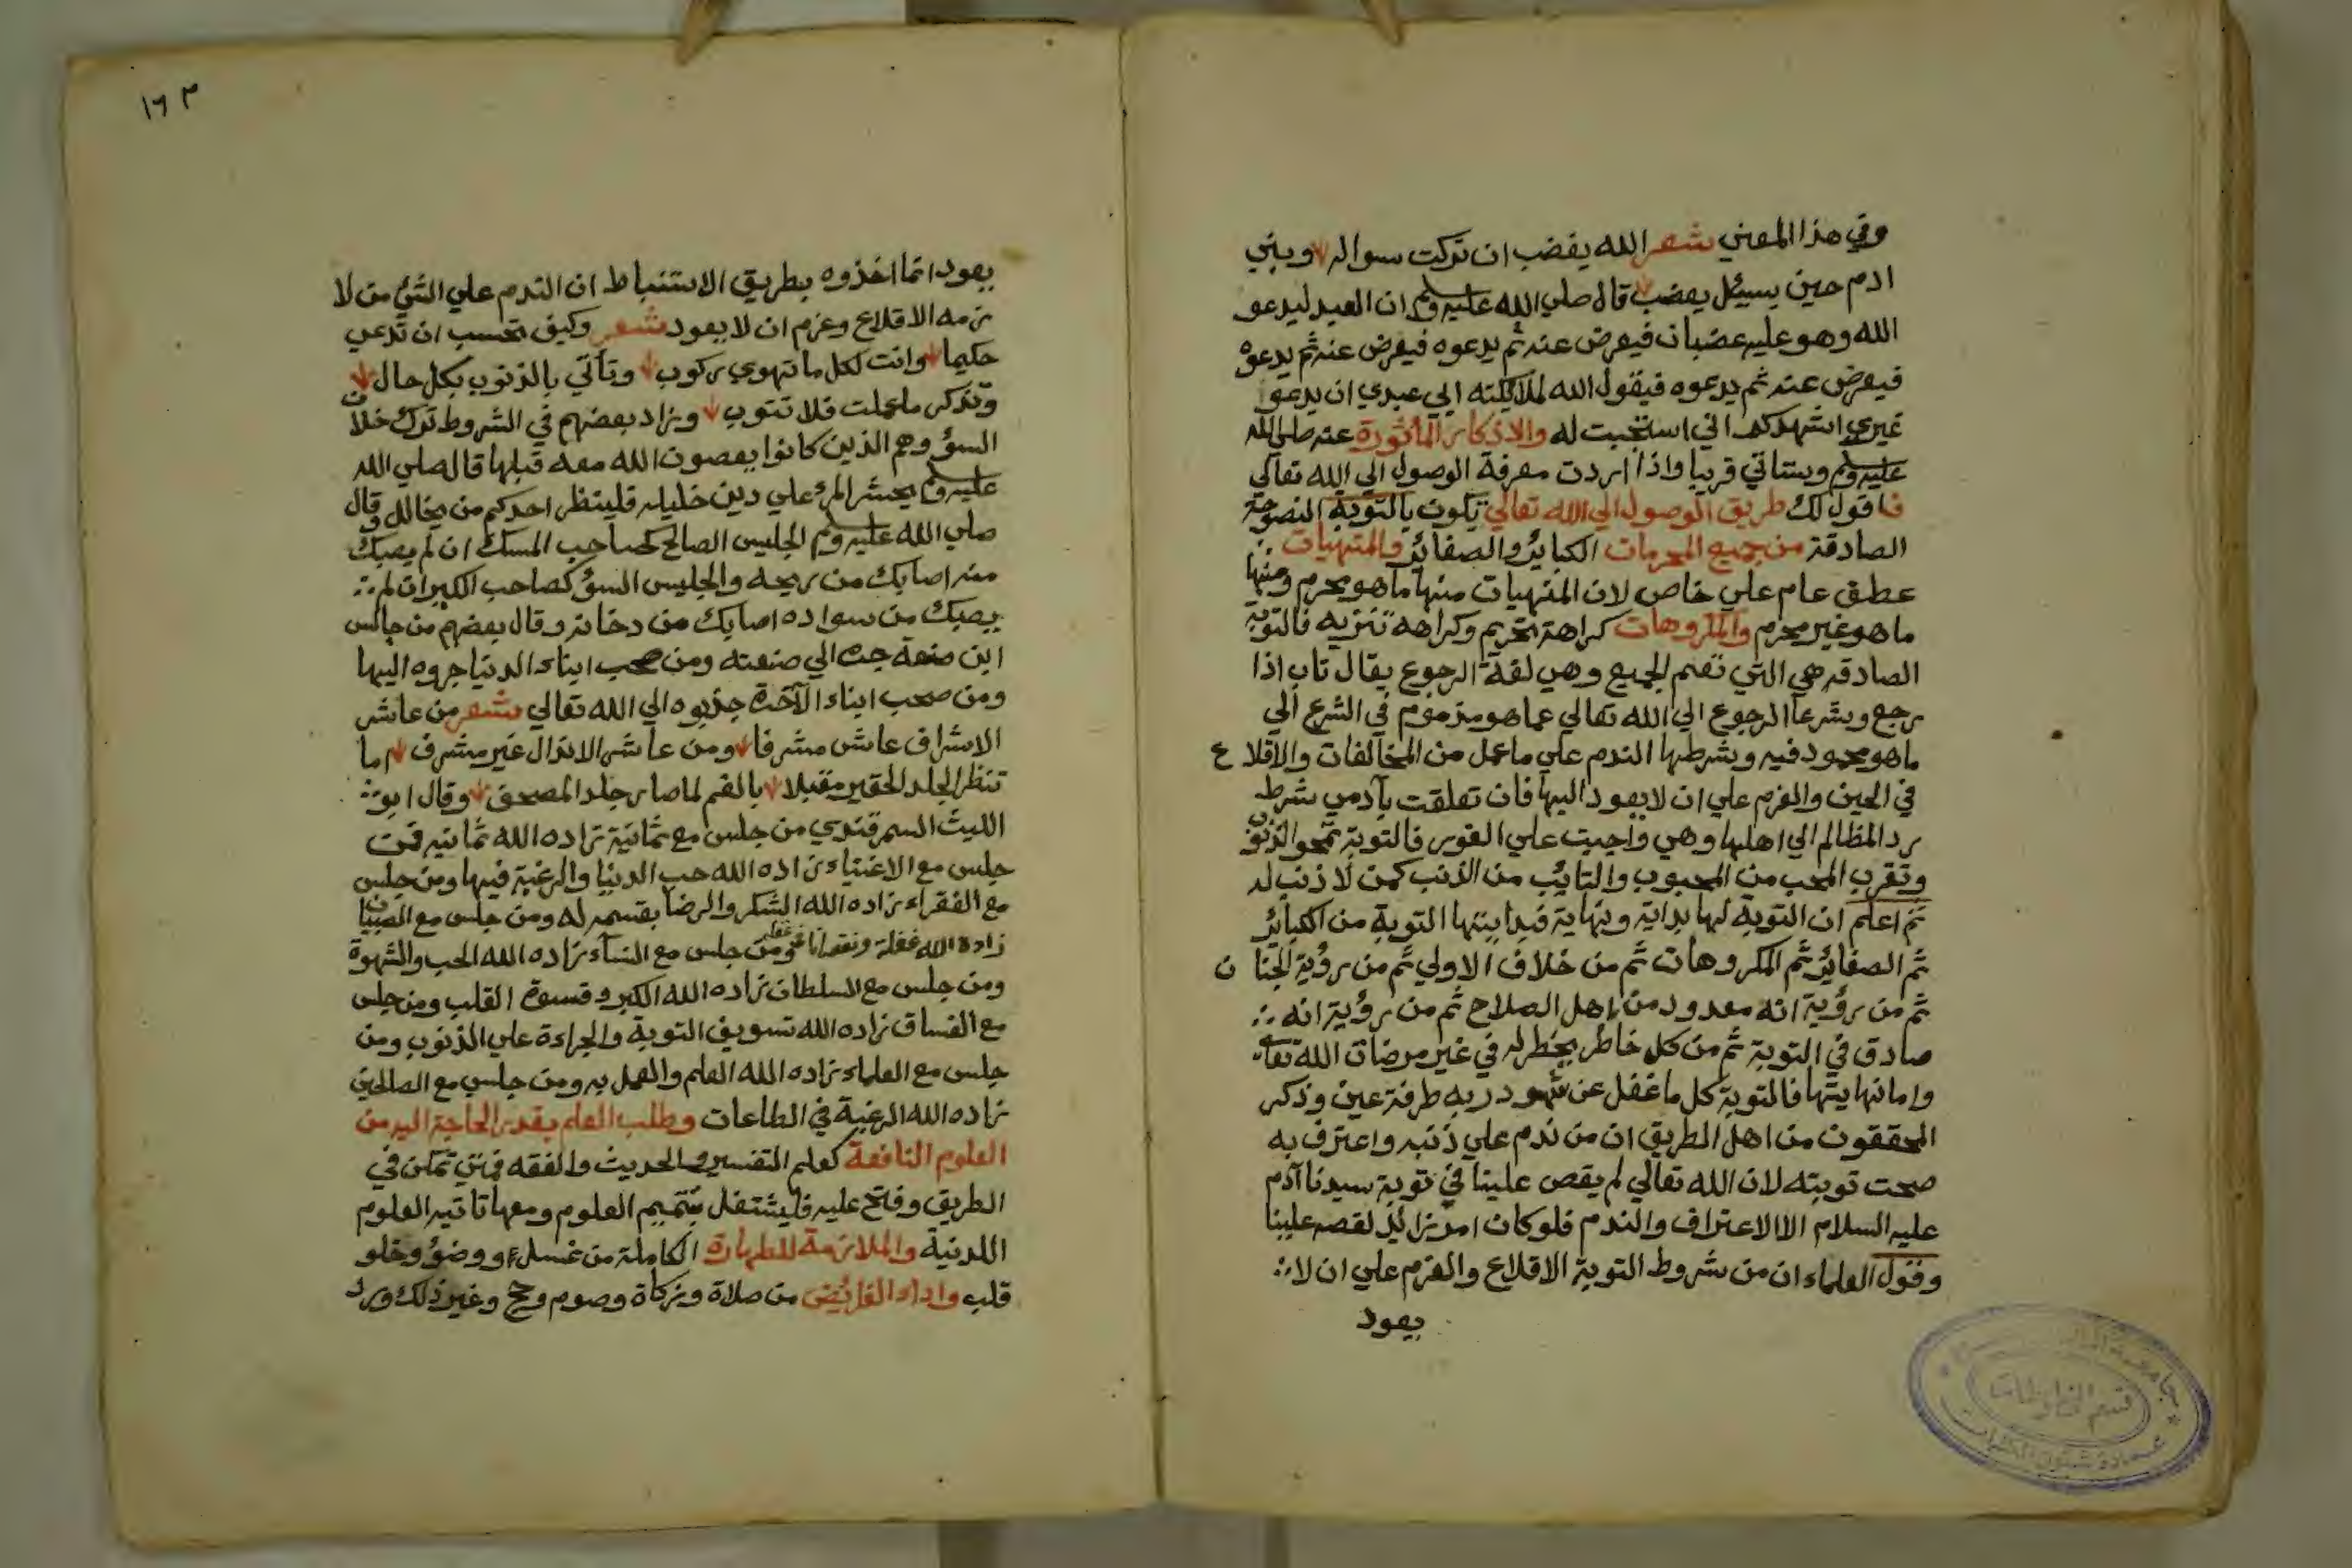 وفي هذا المعني شعر الله يغضب ان تركت سواله وبني
ادم حين يسيئل يغضب قال صلي الله عليه وسلم ان العبد ليدعو
الله وهو عليه غضبان فيعرض عنه ثم يدعوه فيعرض عنه ثم يدعوه
فيعرض عنه ثم يدعوه فيقول الله لملائكته ابي عبدي ان يدعو
غيري اشهدكم اني استجبت له والاذكار المأثورة عنه صلي الله
عليه وسلم وستاتي قريبا واذا اردت معرفة الوصول الي الله تعالي
فاقول لك طريق الوصول الي الله تعالي تكون بالتوبة النصوحة
الصادقة من جميع المحرمات الكبائر والصغائر والمنهيات
عطف عام علي خاص لان المنهيات منها ما هو محرم ومنها
ما هو غير محرم والمكروهات كراهة تحريم وكراهه تنزيه فالتوبة
الصادقه هي التي تعم الجميع وهي لغة الرجوع يقال تاب اذا
رجع وشرعا الرجوع الي الله تعالي عما هو مذموم في الشرع الي
ما هو محمود فيه وشرطها الندم علي ما عمل من المخالفات والاقلاع
في الحين والعزم علي ان لا يعود اليها فان تعلقت بآدمي شرط
رد المظالم الي اهلها وهي واجبت علي الفور فالتوبة تمحو الذنوب
وتقرب المحب من المحبوب والتائب من الذنب كمن لا ذنب له
ثم اعلم ان التوبة لها بداية ونهاية فبدايتها التوبة من الكبائر
ثم الصغائر ثم المكروهات ثم من خلاف الاولي ثم من رؤية الجنان
ثم من رؤية انه معدود من اهل الصلاح ثم من رؤية انه
صادق في التوبة ثم من كل خاطر يخطر له في غير مرضات الله تعالي
واما نهايتها فالتوبة كل ما غفل عن شهود ربه طرفة عين وذكر
المحققون من اهل الطريق ان من ندم علي ذنبه واعترف به
صحت توبته لان الله تعالي لم يقص علينا في توبة سيدنا آدم
عليه السلام الا الاعتراف والندم فلو كان امر زائد لقصه علينا
وقول العلماء ان من شروط التوبة الاقلاع والعزم علي ان لا
يعود
١٦٣
يعود انما اخذوه بطريق الاستنباط ان الندم علي الشئ من لا
زمه الاقلاع وعزم ان لا يعود شعر وكيف تحسب ان تدعي
حكيما وانت لكل ما تهوي ركوب وتأتي بالذنوب بكل حال
وتذكر ما عملت فلا تتوب وزاد بعضهم في الشروط ترك خلان
السؤ وهم الذين كانوا يعصون الله معه قبلها قال صلي الله
عليه وسلم يحشر المرء علي دين خليله فلينظر احدكم من يخالل وقال
صلي الله عليه وسلم الجليس الصالح كصاحب المسك ان لم يصبك
منه اصابك من ريحه والجليس السؤ كصاحب الكير ان لم
يصبك من سواده اصابك من دخانه وقال بعضهم من جالس
ابن صنعة جره الي صنعته ومن صحب ابناء الدنيا جروه اليها
ومن صحب ابناء الآخرة جذبوه الي الله تعالي شعر من عاشر
الاشراف عاش مشرفا ومن عاشر الانذال غير مشرف اما
تنظر الجلد الحقير مقبلا بالفم لما صار جلد المصحف وقال ابو
الليث السمرقندي من جلس مع ثمانية زاده الله ثمانيه فمن
جلس مع الاغنياء زاده الله حب الدنيا والرغبة فيها ومن جلس
مع الفقراء زاده الله الشكر والرضا بقسمه له ومن جلس مع الصبيان
زاده الله غفلة ومن جلس مع النساء زاده الله الحب والشهوة
ومن جلس مع السلطان زاده الله الكبر وقسوة القلب ومن جلس
مع الفساق زاده الله تسويف التوبة والجراءة علي الذنوب ومن
جلس مع العلماء زاده الله العلم والعمل به ومن جلس مع الصالحين
زاده الله الرغبة في الطاعات وطلب العلم بقدر الحاجة اليه من
العلوم النافعة كعلم التفسير والحديث والفقه فمتي تمكن في
الطريق وفتح عليه فليشتغل بتتميم العلوم ومعها تاتيه العلوم
اللدنية والملازمة للطهارة الكاملة من غسل ووضؤ وخلو
قلب واداء الفرائض من صلاة وزكاة وصوم وحج وغير ذلك ورد
قسم المخطوطات
عمادة شئون المكتبات